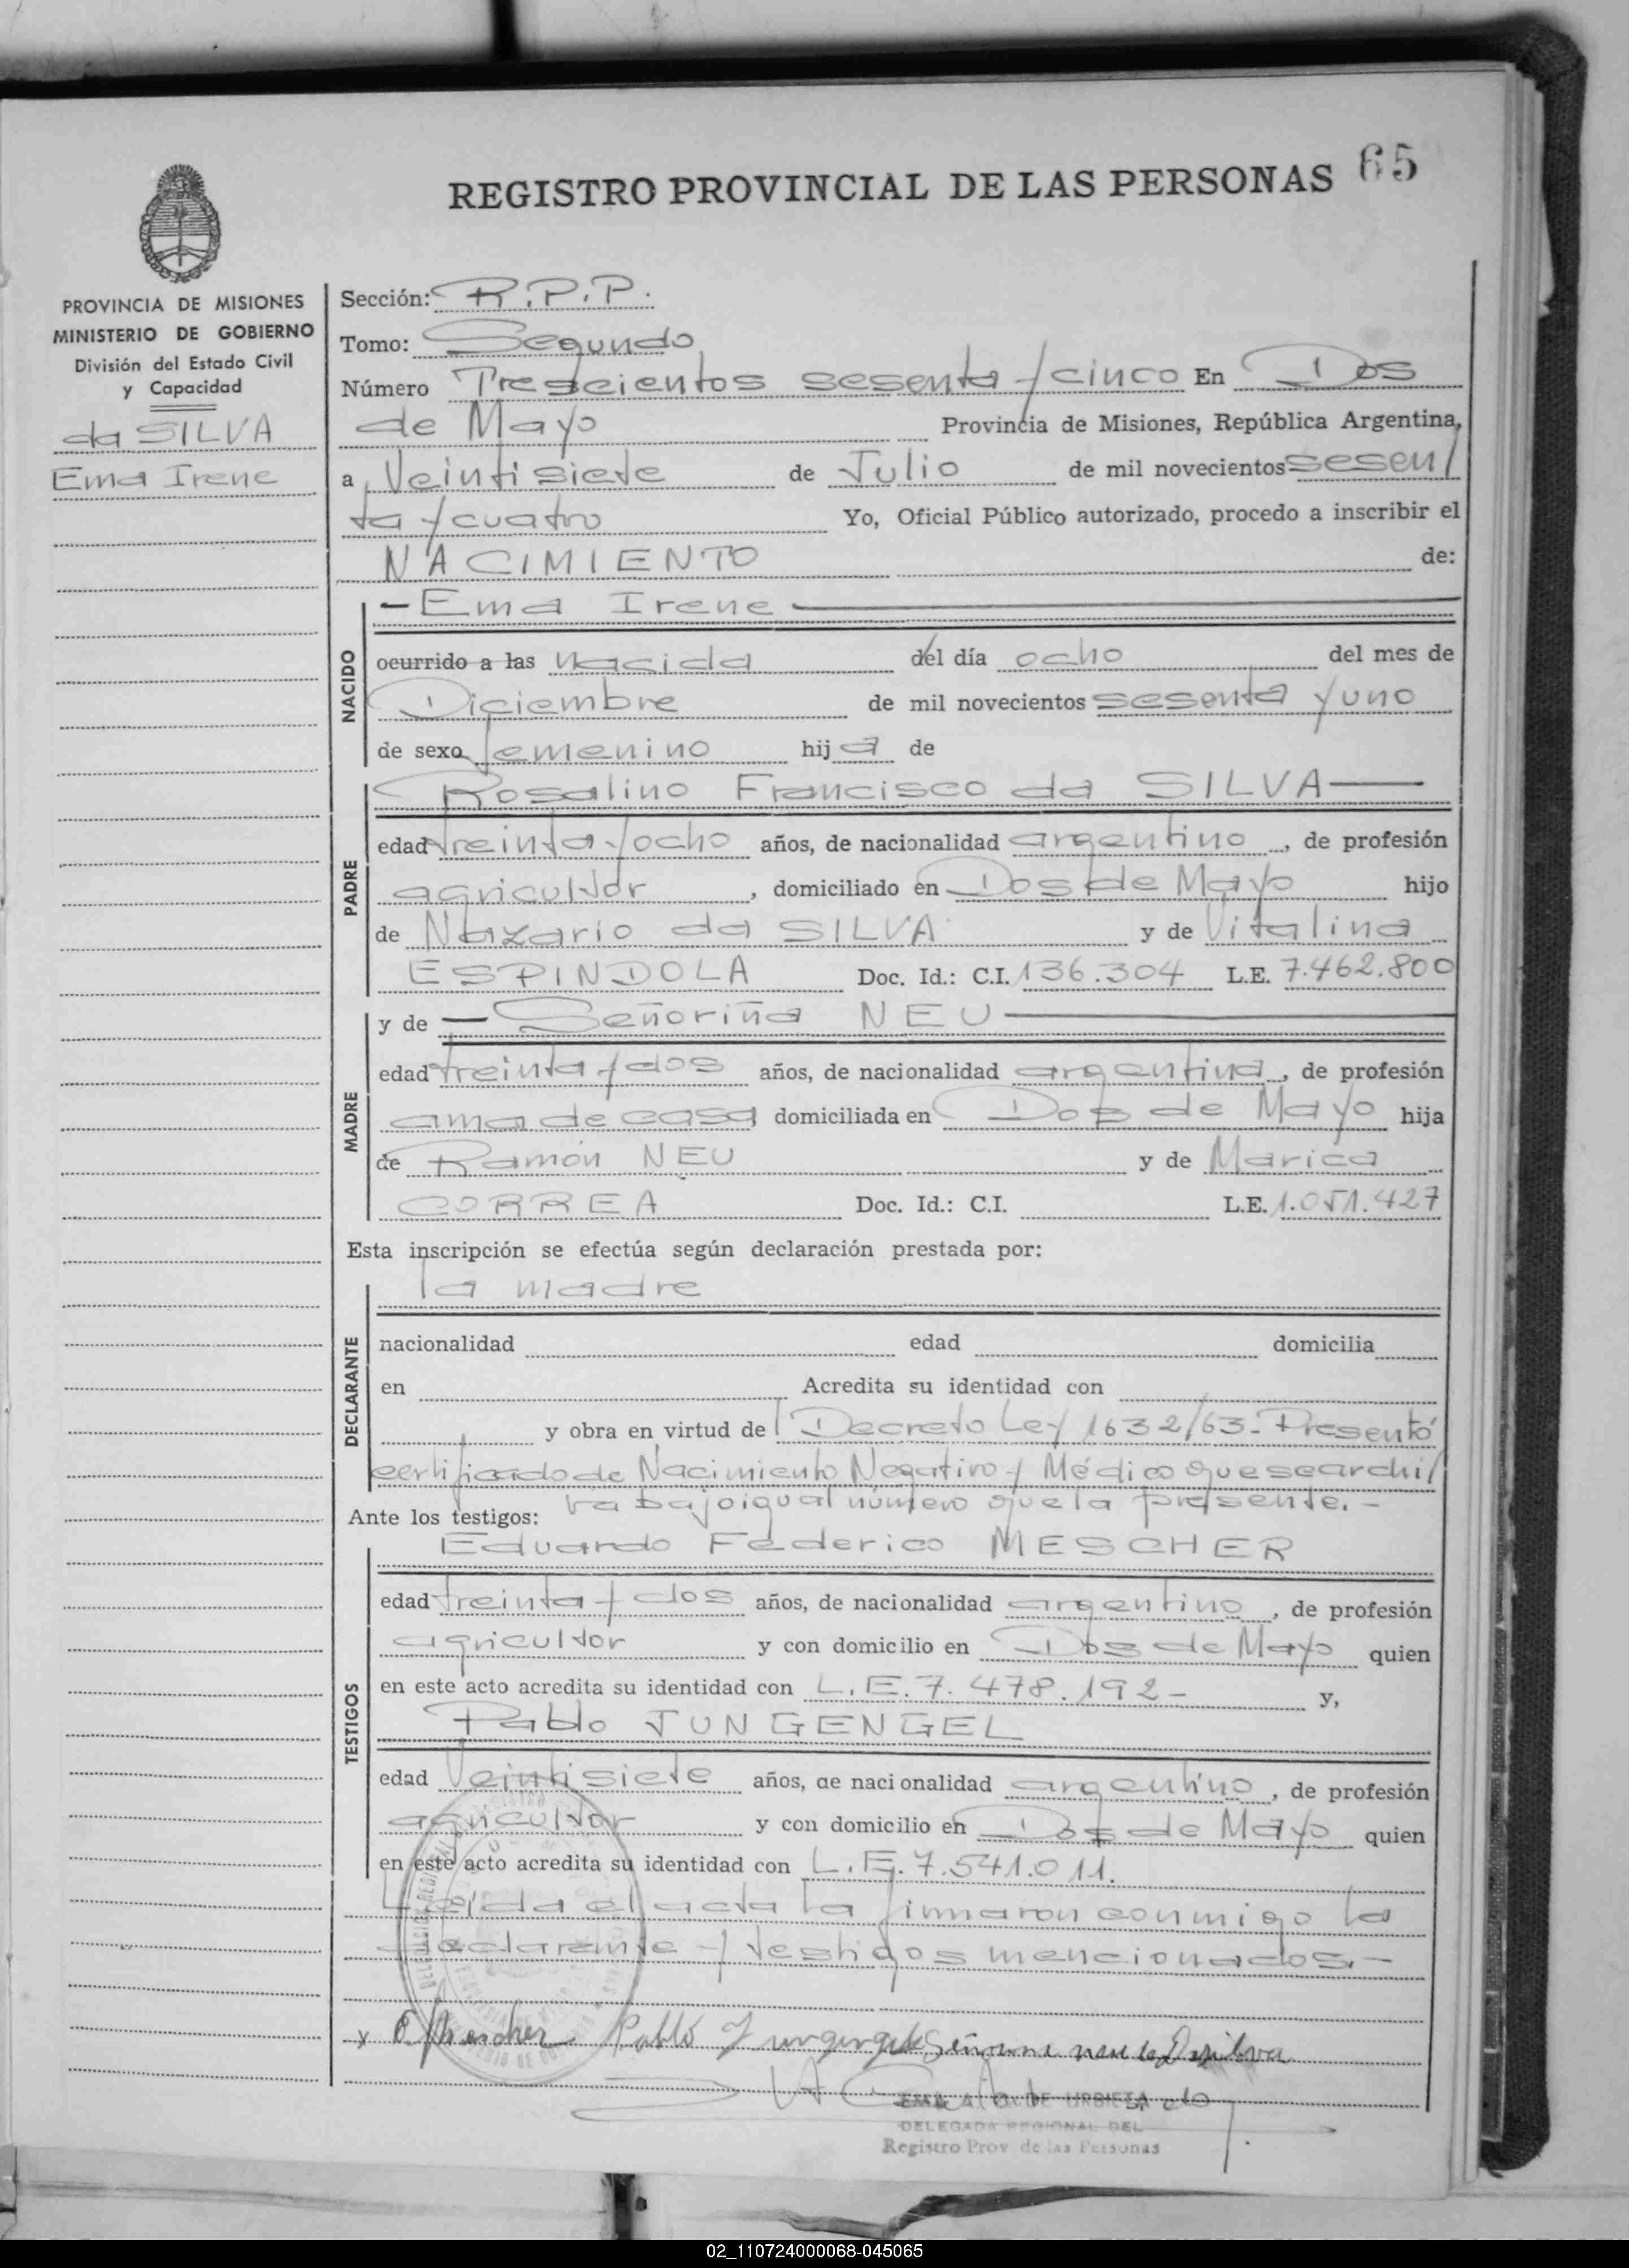 65
REGISTRO PROVINCIAL DE LAS PERSONAS
PROVINCIA DE MISIONES
MINISTERIO DE GOBIERNO
División del Estado Civil
y Capacidad
da SILVA
Ema Irene
Sección: R.P.P.
Tomo: Segundo
Número Trescientos sesenta y cinco En Dos
de Mayo Provincia de Misiones, República Argentina,
a Veintisiete de Julio de mil novecientos sesen/
ta y cuatro Yo, Oficial Público autorizado, procedo a inscribir el
NACIMIENTO de:
NACIDO
- Ema Irene
ocurrido a las nacida del día ocho del mes de
Diciembre de mil novecientos sesenta y uno
de sexo femenino hija de
PADRE
Rosalino Francisco da SILVA
edad treinta y ocho años, de nacionalidad argentino, de profesión
agricultor, domiciliado en Dos de Mayo hijo
de Nazario da SILVA y de Vitalina
ESPINDOLA Doc. Id.: C.I. 136.304 L.E. 7.462.800
MADRE
y de - Señoriña NEU
edad treinta y dos años, de nacionalidad argentina, de profesión
ama de casa domiciliada en Dos de Mayo hija
de Ramón NEU y de Marica
CORREA Doc. Id.: C.I. L.E. 1.051.427
Esta inscripción se efectúa según declaración prestada por:
DECLARANTE
la madre
nacionalidad edad domicilia
en Acredita su identidad con
y obra en virtud de Decreto Ley 1632/63- Presentó
certificado de Nacimiento Negativo y Médico que se archi/
va bajo igual número que la presente.-
Ante los testigos:
TESTIGOS
Eduardo Federico MESCHER
edad treinta y dos años, de nacionalidad argentino, de profesión
agricultor y con domicilio en Dos de Mayo quien
en este acto acredita su identidad con L.E. 7.478.192- y,
Pablo JUNGENGEL
edad Veintisiete años, de nacionalidad argentino, de profesión
agricultor y con domicilio en Dos de Mayo quien
en este acto acredita su identidad con L.E. 7.541.011.
Leída el acta la firmaron conmigo la
declarante y testigos mencionados.-
x E Mescher Pablo Jungengel Señorina neu de Dasilva
DE URBIETA
DELEGADA REGIONAL DEL
Registro Prov de las Personas
02_110724000068-045065